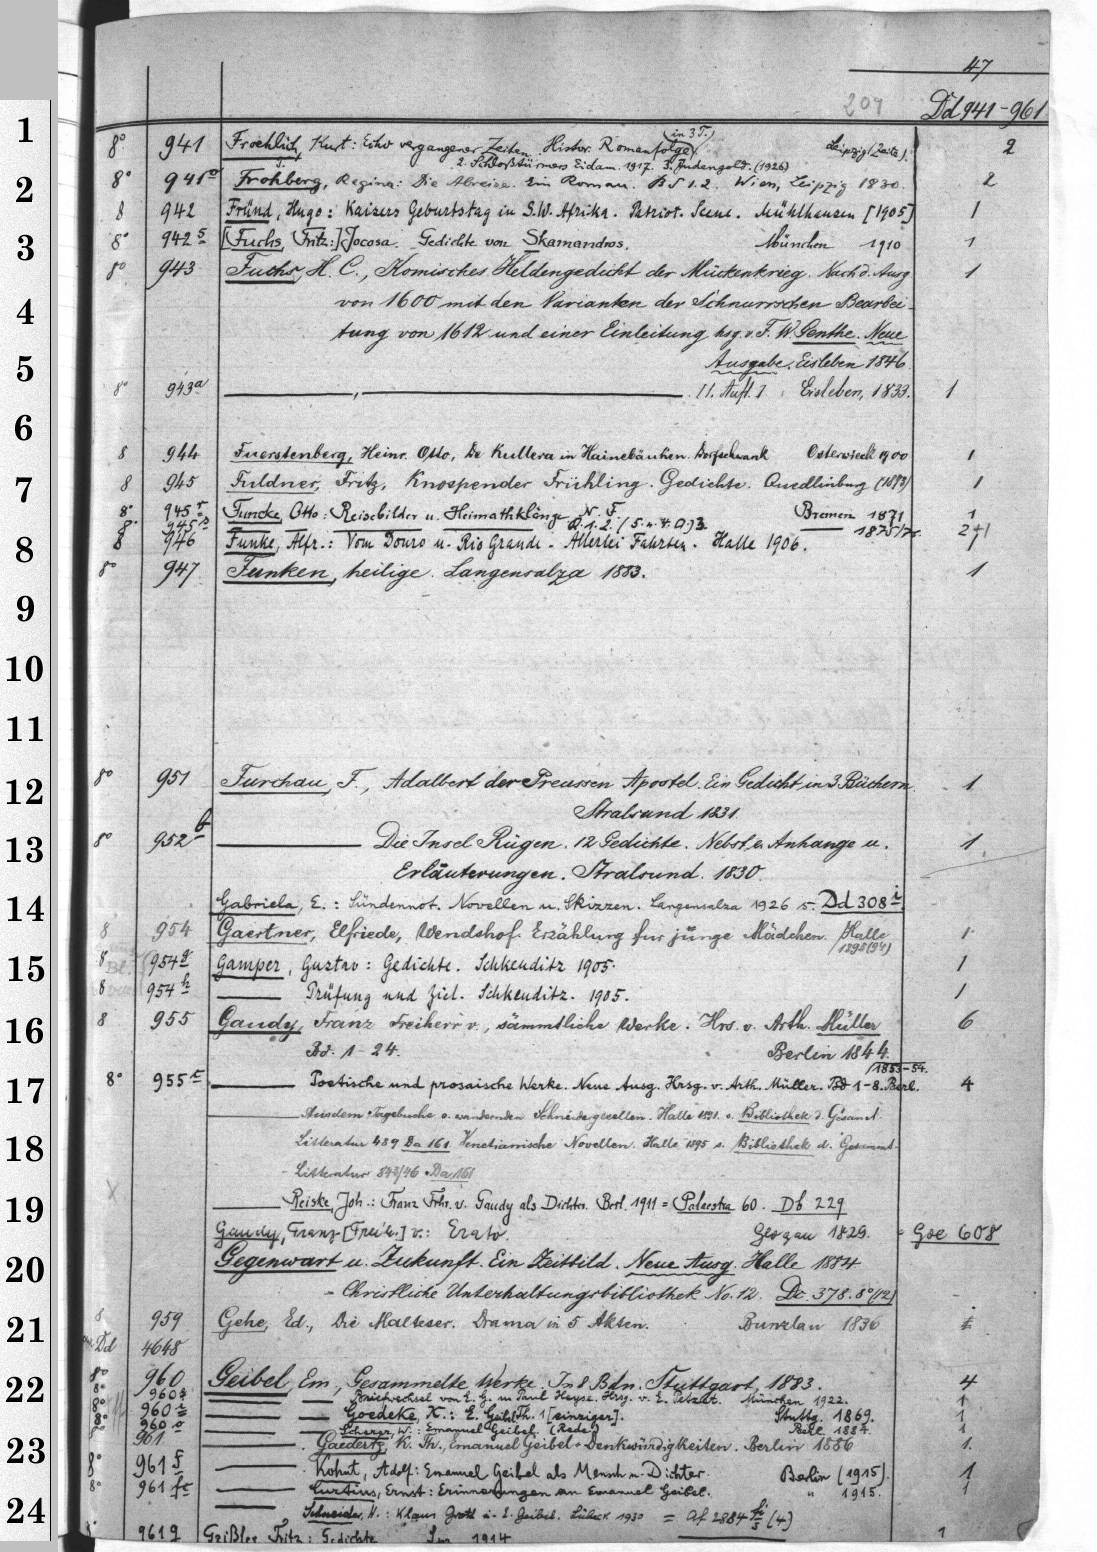 47
207 Dd 941-961
1
8° 941 Froehlich, Kurt: Echo vergangener Zeiten. Histor. Romanfolge (in 3 T.) Leipzig (Zeitz). 2
2. Schloßtürmers Eidam. 1917. 3. Judengold. (1926)
2
8° 941a Frohberg, Regina: Die Abreise. Ein Roman. Bd 1.2. Wien, Leipzig 1830. 2
8 942 Fründ, Hugo: Kaisers Geburtstag in S.W. Afrika. Patriot. Scene. Mühlhausen [1905] 1
3
8° 942 s [Fuchs, Fritz:] Jocosa. Gedichte von Skamandros. München 1910 1
8° 943 Fuchs, H. C., Komisches Heldengedicht der Mückenkrieg. Nach d. Ausg 1
4
von 1600 mit den Varianten der Schnurrschen Bearbei-
tung von 1612 und einer Einleitung hsg. v. F. W. Genthe. Neue
5
Ausgabe. Eisleben 1846
8° 943a , . 11. Aufl. Eisleben, 1833. 1
6
8 944 Fuerstenberg, Heinr. Otto, De Kullera in Hainebäuken. Dorfschwank Osterwieck 1900 1
7
8 945 Fuldner, Fritz, Knospender Frühling. Gedichte. Quedlinburg (1893) 1
8° 945 r Funcke, Otto: Reisebilder u. Heimathklänge Bremen 1871 1
8° 945 N. F. 1.2. (5. u. 4. A.) 3 1873/75. 2+1
8
8 946 Funke, Alfr.: Vom Douro u. Rio Grande. Allerlei Fahrten. Halle 1906. 1
8° 947 Funken, heilige. Langensalza 1883. 1
9
10
11
12
8° 951 Furchau, F., Adalbert der Preussen Apostel. Ein Gedicht in 3 Büchern. 1
Stralsund 1831.
13
8° 952 b Die Insel Rügen. 12 Gedichte. Nebst e. Anhange u. 1
Erläuterungen. Stralsund. 1830.
14
Gabriela, E.: Sündennot. Novellen u. Skizzen. Langensalza 1926 s. Dd 308 i
8 954 Gaertner, Elfriede, Wendshof. Erzählung für junge Mädchen. Halle 1
15
8 954 g Gamper, Gustav: Gedichte. Schkeuditz 1905. 1
8 954 h Prüfung und Ziel. Schkeuditz. 1905. 1
16
8 955 Gaudy, Franz Freiherr v., sämmtliche Werke. Hrs. v. Arth. Müller 6
Bd. 1-24. Berlin 1844.
17
8° 955 c Poetische und prosaische Werke. Neue Ausg. Hrsg. v. Arth. Müller. Bd 1-8. Berl. 1853-54. 4
Aus dem Tagebuche e. wandernden Schneidergesellen. Halle 1891. s. Bibliothek d. Gesamt-
18
Litteratur 489 Da 161. Venetianische Novellen. Halle 1895 s. Bibliothek d. Gesammt-
Litteratur 843/46 Da 161
19
Reiske, Joh.: Franz Frhr. v. Gaudy als Dichter. Berl. 1911 = Palaestra 60. Db 229
Gaudy, Franz [Freih.] v.: Erato. Glogau 1829. = Gse 608
20
Gegenwart u. Zukunft. Ein Zeitbild. Neue Ausg. Halle 1884
- Christliche Unterhaltungsbibliothek No. 12. Dc. 378. 8° (12)
21
8 959 Gehe, Ed., Die Malteser. Drama in 5 Akten. Bunzlau 1836
Dd 4648
22
8° 960 Geibel, Em., Gesammelte Werke. In 8 Bdn. Stuttgart, 1883. 4
8° 960 Briefwechsel von E. G. u. Paul Heyse. Hrsg. v. E. Petzet. München 1922. 1
8° 960 Goedeke, K.: E. Geibel Th. 1 [einziger]. Stuttg. 1869. 1
8° 960 Scherer, W.: Emanuel Geibel. (Rede) Berl. 1884. 1
23
961 Gaedertz, K. Th., Emanuel Geibel-Denkwürdigkeiten. Berlin 1886 1.
8° 961 f Kohut, Adolf: Emanuel Geibel als Mensch u. Dichter. Berlin (1915) 1
8° 961 fc Curtius, Ernst: Erinnerungen an Emanuel Geibel. " 1915. 1
24
Schneider, H.: Klaus Groth u. E. Geibel. Lübeck 1930 = Af 2884 (4)
8° 961g Geißler, Fritz: Gedichte 1914 1